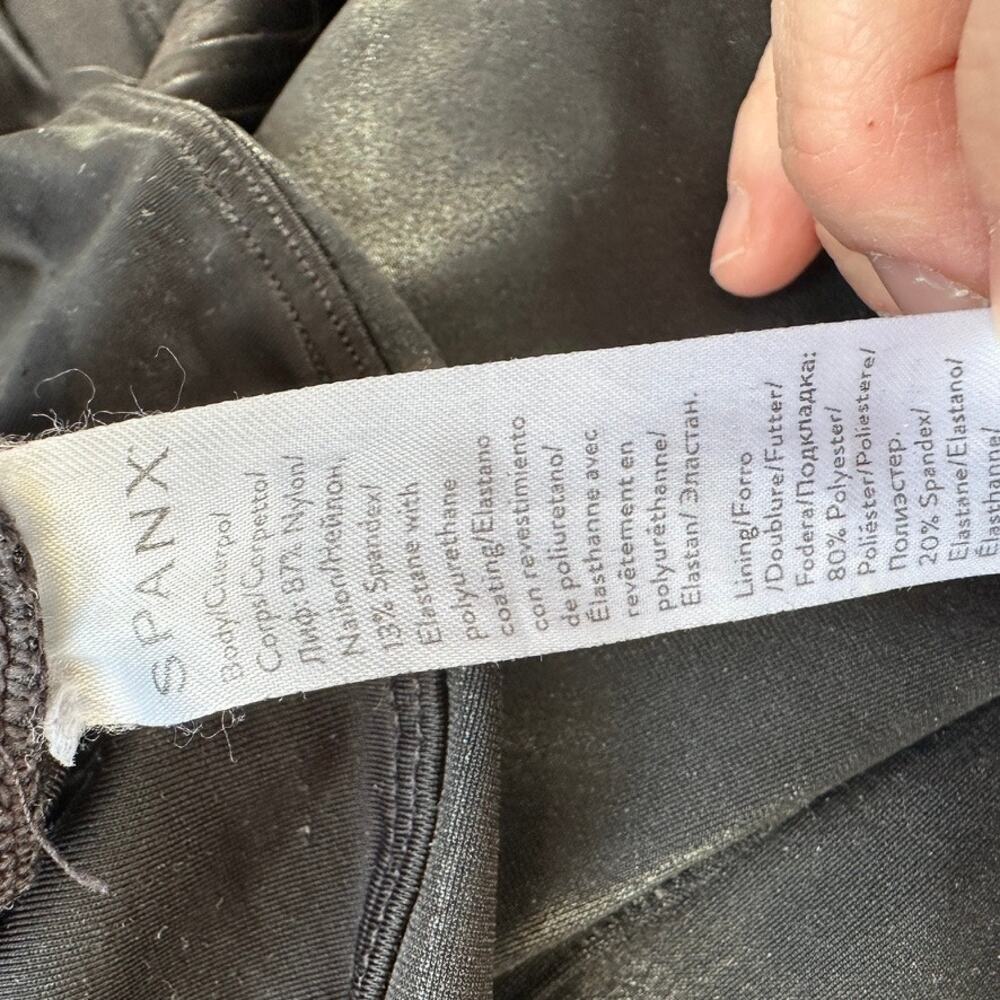 SPANX
Body/Cuerpo/
Corps/Corpetto/
Лиф: 87% Nylon/
Nailon/Нейлон,
13% Spandex/
Elastane with
polyurethane
coating/Elastano
con revestimiento
de poliuretano/
Élasthanne avec
revêtement en
polyuréthanne/
Elastan/ Эластан.
Lining/Forro
/Doublure/Futter/
Fodera/Подкладка:
80% Polyester/
Poliéster/Poliestere/
Полиэстер.
20% Spandex/
Elastane/Elastano/
Élasthanne/